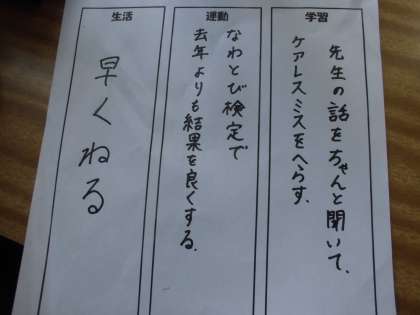 学習
先生の話をちゃんと聞いて、
ケアレスミスをへらす。
運動
なわとび検定で
去年よりも結果を良くする。
生活
早くねる